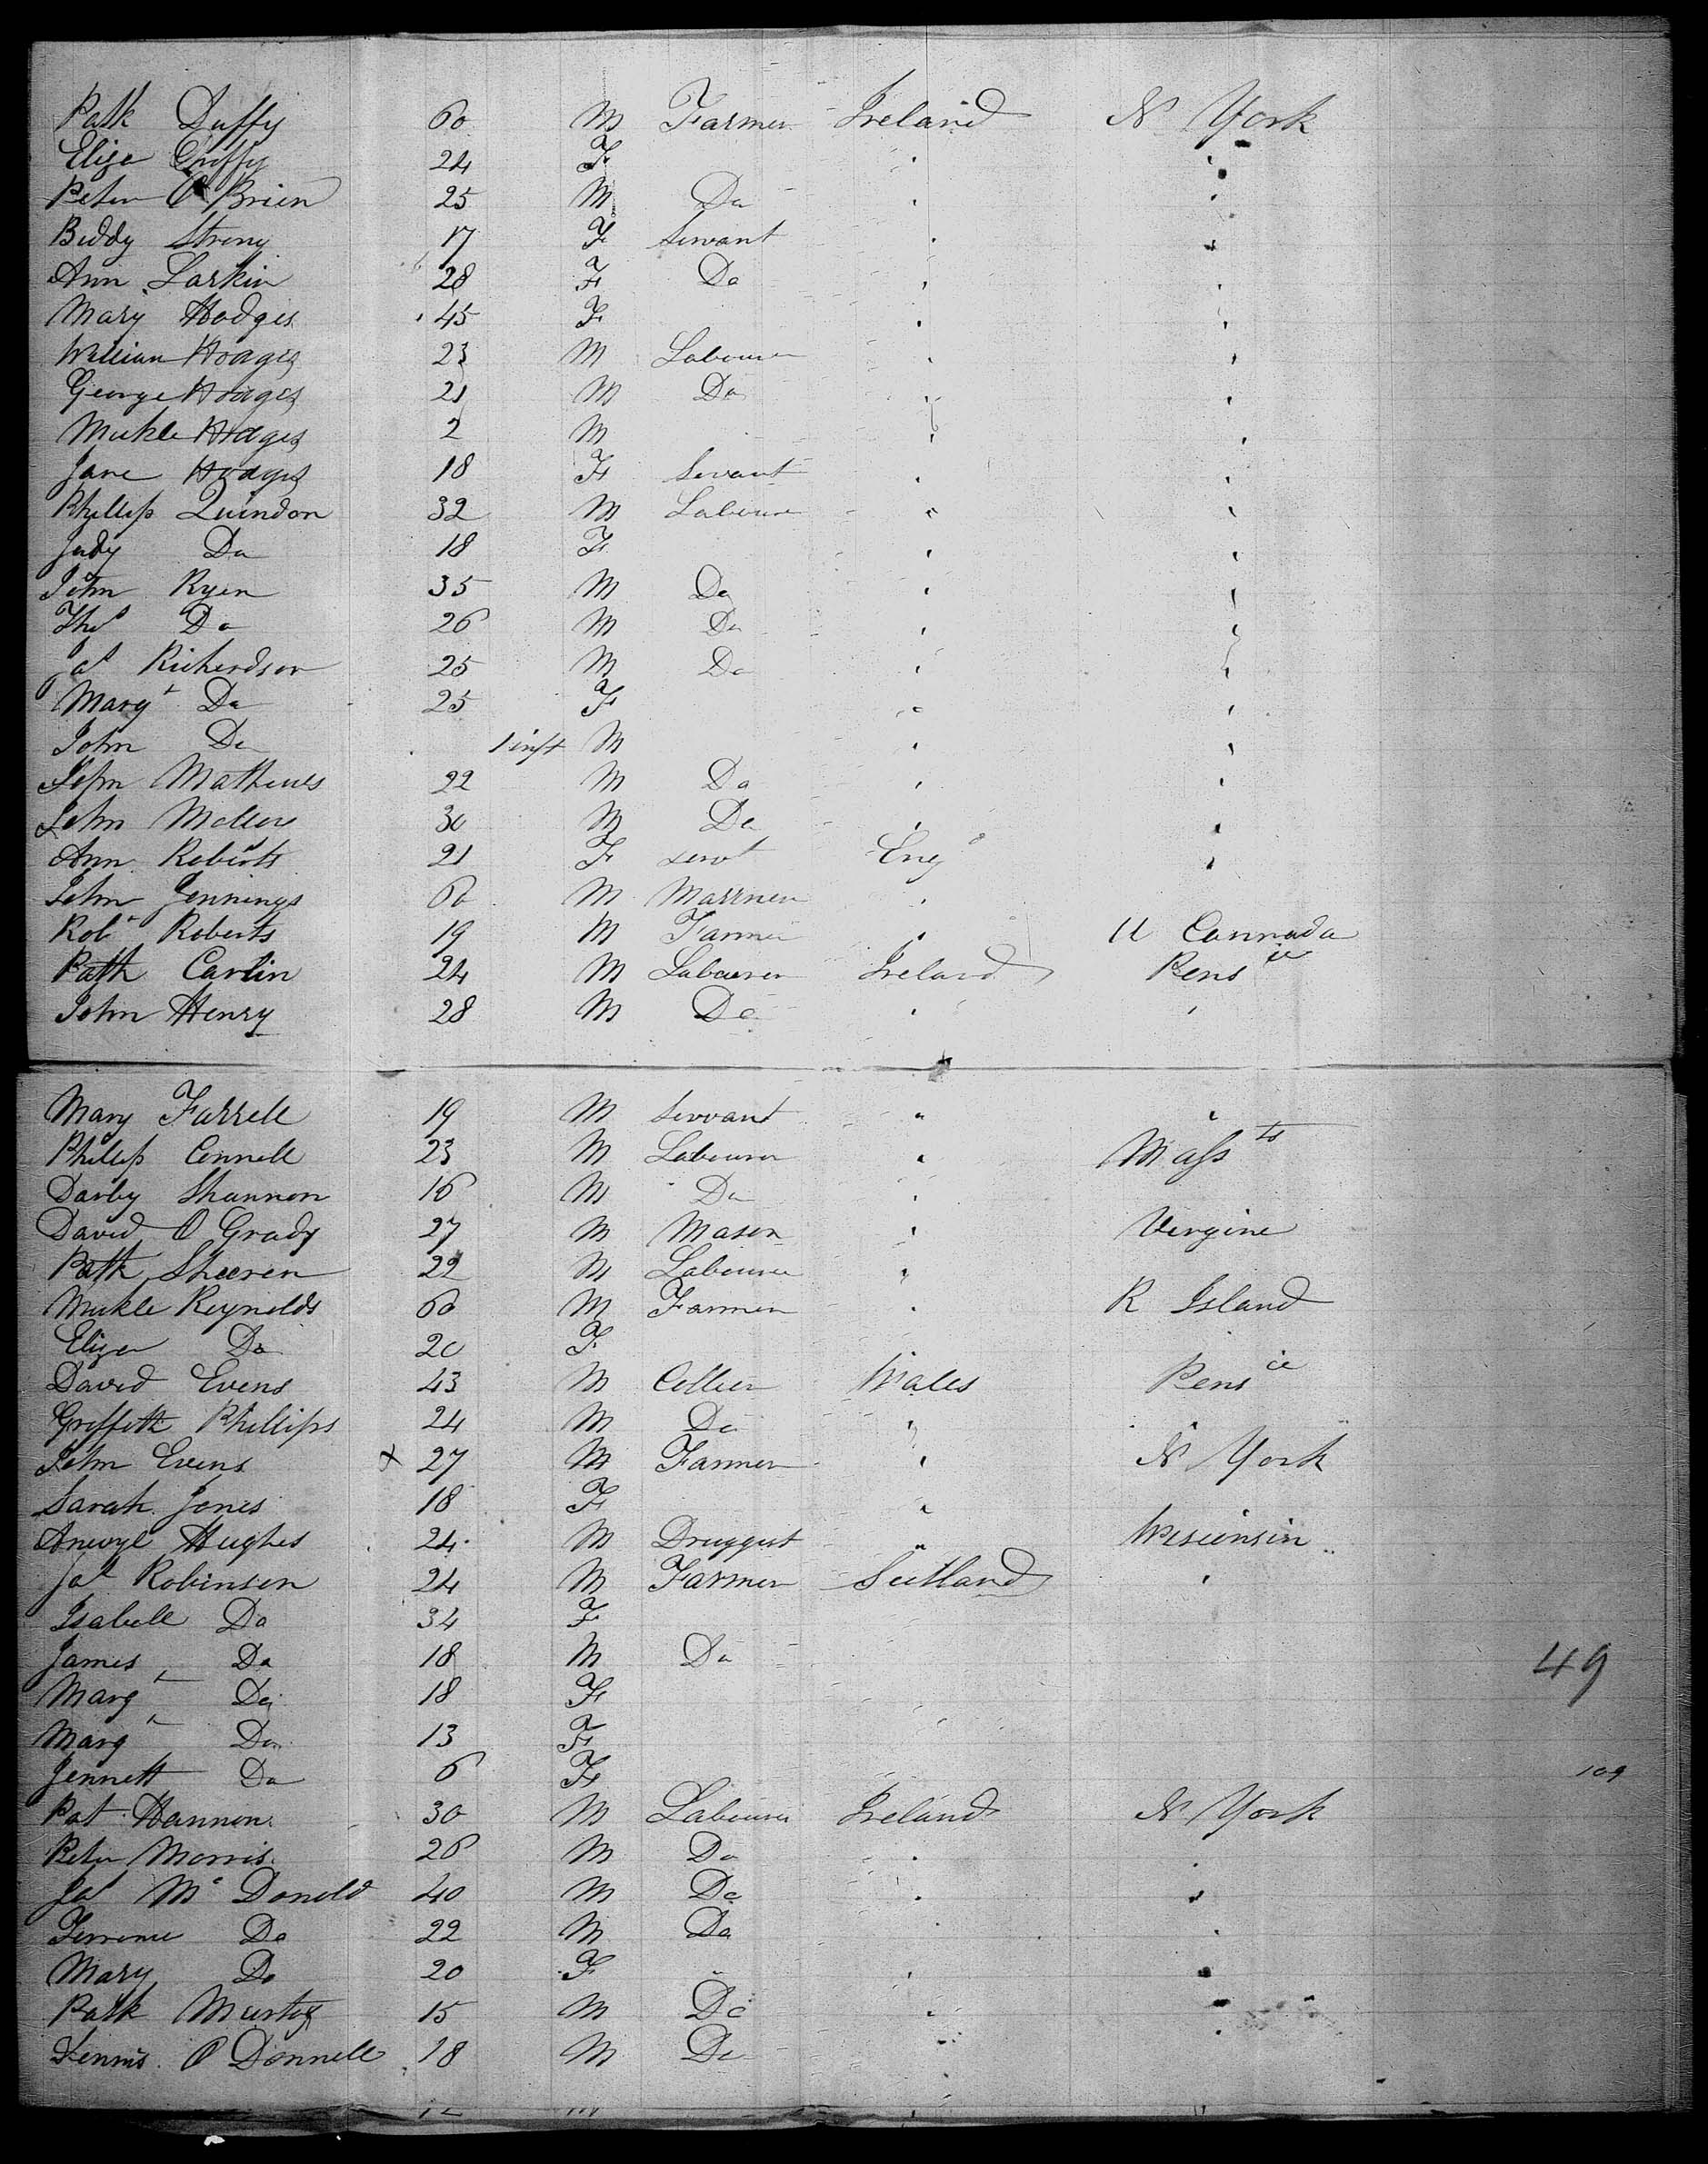 Patk Duffy 60 M Farmer Ireland N York
Eliza Duffy 24 F " "
Peter O Brien 25 M Do " "
Biddy Strony 17 F Servant " "
Ann Larkin 28 F Do " "
Mary Hodges 45 F " "
William Hodges 23 M Labourer " "
George Hodges 21 M Do " "
Mickle Hodges 2 M " "
Jane Hodges 18 F Servant " "
Phillip Quindon 32 M Labourer " "
Judy Do 18 F " "
John Ryen 35 M Do " "
Thos Do 26 M Do " "
Jas Richerdson 25 M Do " "
Margt Do 25 F " "
John Do 1 inft M " "
John Mathews 22 M Do " "
John 30 M Do " "
Ann Roberts 21 F servt Engd "
John Jennings 60 M Marrner "
Robt Roberts 19 M Farmer " U Cannada
Patk Carlin 24 M Labourer Ireland Pensie
John Henry 28 M Do " "
Mary Farrell 19 M Servant " "
Phillip Connell 23 M Labourer " Massts
Darby Shannon 16 M Do "
David O Grady 27 M Mason " Vergine
Patk Sheeren 22 M Labourer "
Mickle Reynolds 60 M Farmer " R Island
Eliza Do 20 F
David Evens 43 M Collier Wales Pensie
Griffeth Phillips 24 M Do " "
John Evens x 27 M Farmer " N York
Sarah Jones 18 F "
Anwyl Hughes 24 M Druggist " Wisconsin
Jas Robinson 24 M Farmer Scotland "
Isabell Do 34 F
James Do 18 M Do
49
Margt Do 18 F
Margt Do 13 F
Jennett Do 6 F
109
Pat Hannon 30 M Labourer Ireland N York
Peter Morris 26 M Do " "
Jas Mc Donold 40 M Do " "
Terrence Do 22 M Do " "
Mary Do 20 F " "
Patk Murtog 15 M Do " "
Dennis O Donnell 18 M Do " "